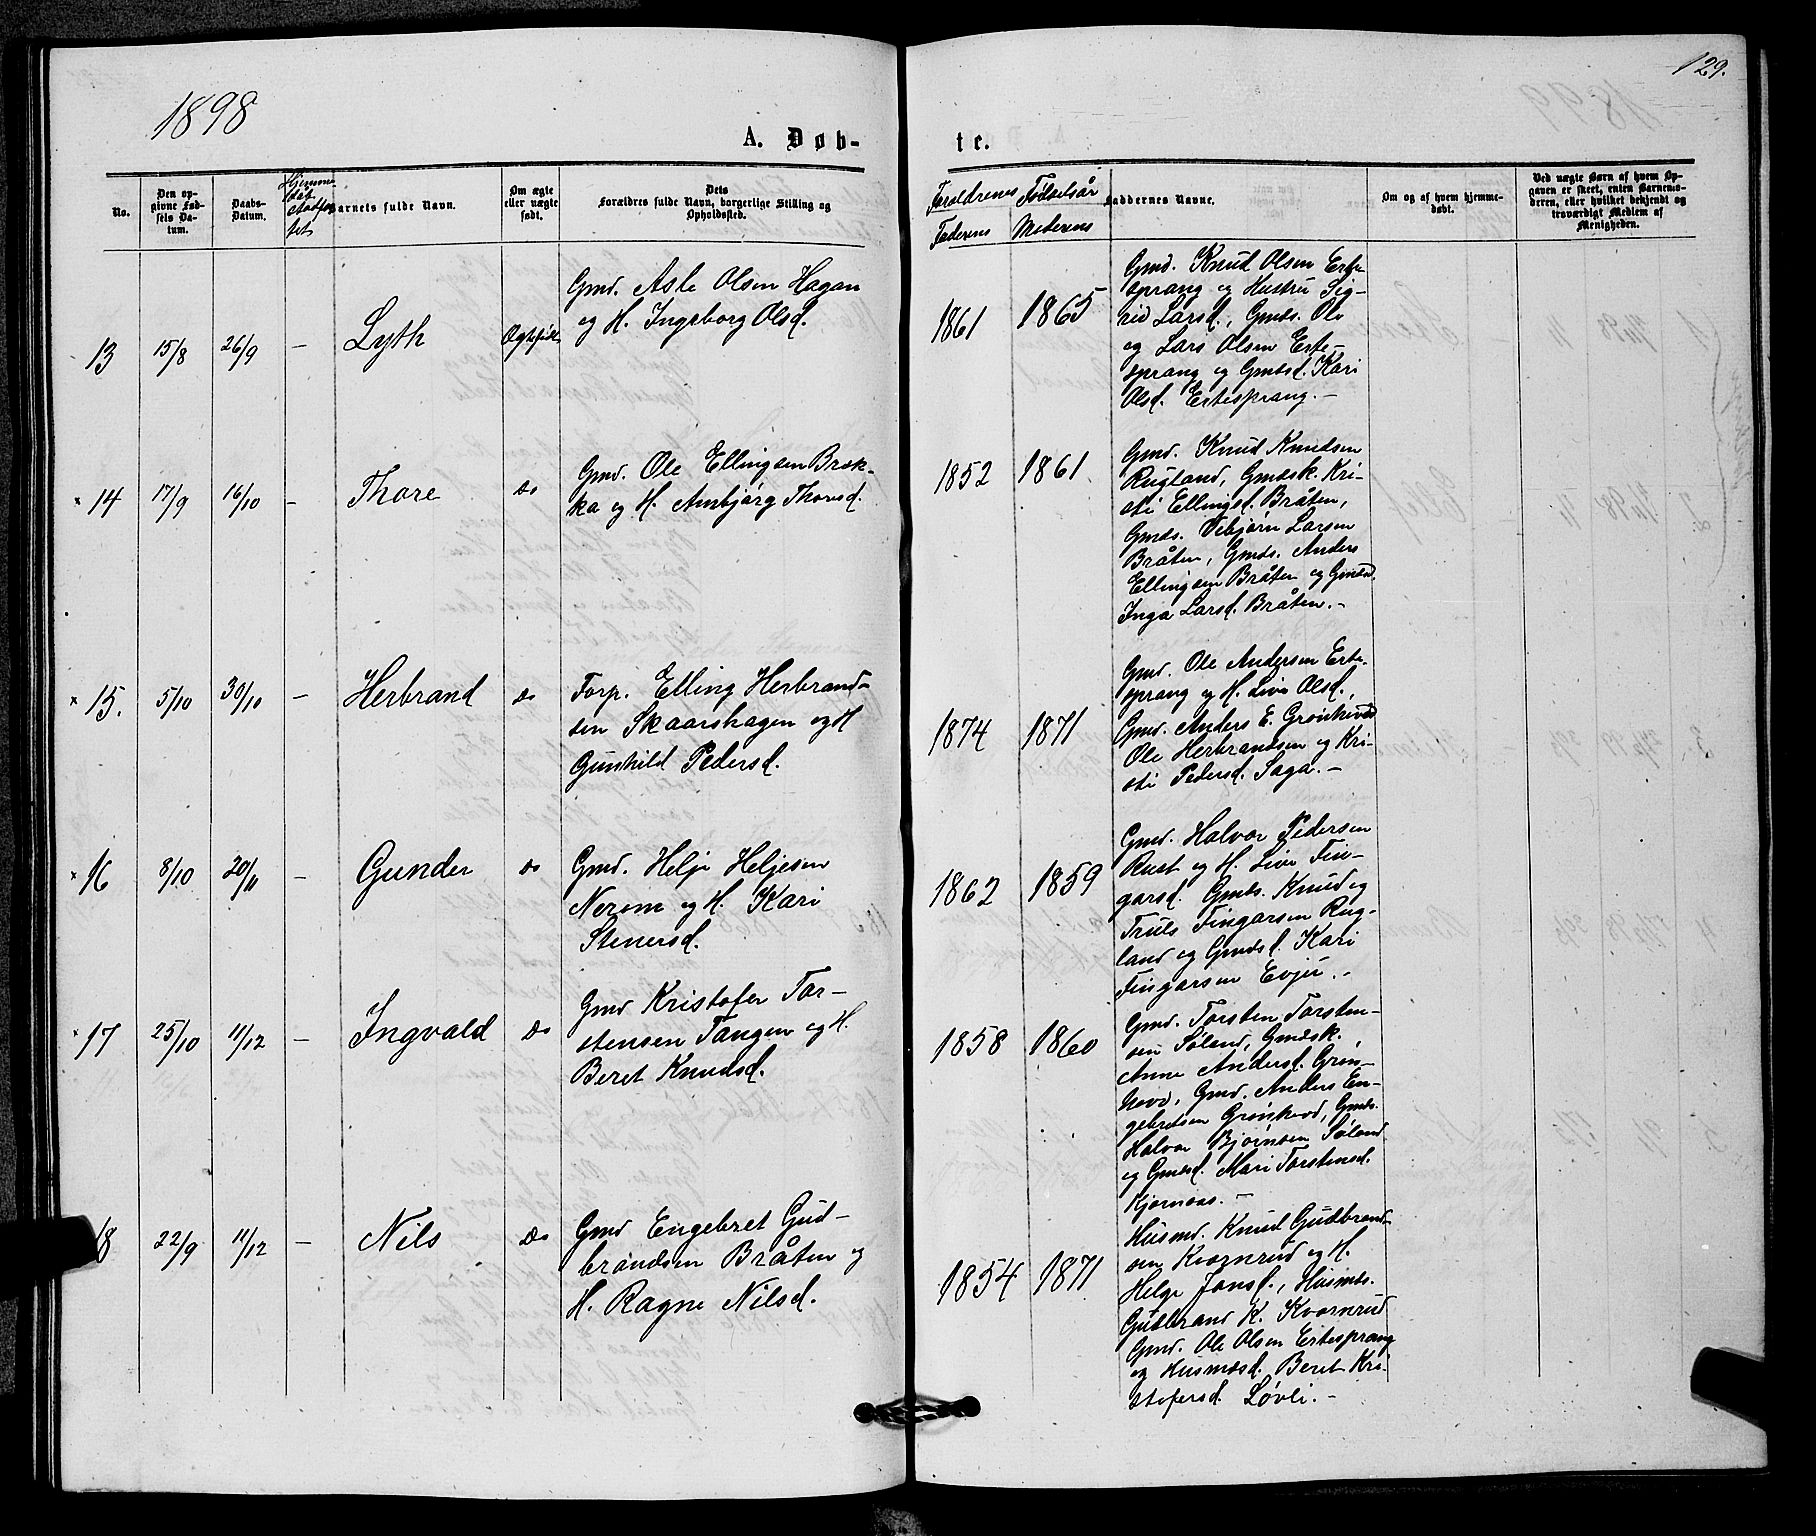 129.
1898
A. Døb-
te.
No.
Den op-
givne Fød-
sels Da-
tum.
Daabs-
Datum.
Hjemme-
daab
stadfæs
tet
Barnets fulde Navn.
Om ægte
eller uægte
født.
Dets
Forældres fulde Navn, borgerlige Stilling og
Opholdssted.
Forældrenes Fødselsår
Faderens Moderens
Faddernes Navne.
Om og af hvem hjemme-
døbt.
Ved uægte Børn af hvem Op-
gaven er skeet, enten Barnemo-
deren, eller hvilket bekjendt og
troværdigt Medlem af
Menigheden.
13 15/8 26/9 – Lyth Ægtefødt
Gmd. Asle Olsen Hagan
og H. Ingeborg Olsd.
1861 1865
Gmd. Knud Olsen Erte-
sprang og Hustru Sig-
rid Larsd., Gmds. Ole
og Lars Olsen Erte-
sprang og Gmdsd. Kari
Olsd. Ertesprang. –
× 14 17/9 16/10 – Thore Do
Gmd. Ole Ellingsen Bræk-
ka og H. Ambjørg Thoresd.
1852 1861
Gmd. Knud Knudsen
Rugland, Gmdsk. Kri-
sti Ellingsd. Bråten,
Gmds. Vebjørn Larsen
Bråten, Gmds. Anders
Ellingsen Bråten og Gmdsd.
Inga Larsd. Bråten. –
× 15. 5/10 30/10 – Herbrand Do
Forp. Elling Herbrand-
sen Skaarshagen og H
Gunhild Pedersd.
1874 1871
Gmd. Ole Andersen Erte-
sprang og H. Live Olsd.,
Gmd. Anders E. Grønhovd
Ole Herbrandsen og Kri-
sti Pedersd. Saga. –
× 16 8/10 20/11 – Gunder Do
Gmd. Helje Heljesen
Nerom og H. Kari
Stenersd.
1862 1859
Gmd. Halvor Pedersen
Rust og H. Live Fin-
garsd. Gmds. Knud og
Truls Fingarsen Rug-
land og Gmdsd. Kari
Fingarsen Evju. –
× 17 25/10 11/12 – Ingvald Do
Gmd Kristofer Tor-
stensen Tangen og H.
Beret Knudsd.
1858 1860
Gmd. Torsten Torsten-
sen Søland, Gmdsk.
Anne Andersd. Grøn-
hovd, Gmd. Anders En-
gebretsen Grønhovd, Gmds.
Halvor Bjørnsen Søland
og Gmdsd. Mari Torstensd.
Kjørnaas. –
18 22/9 11/12 – Nils Do
Gmd Engebret Gud-
brandsen Bråten og
H. Ragne Nilsd.
1854 1871
Husmd. Knud Gudbrand-
sen Kvornrud og H.
Helge Jonsd., Husmds.
Gudbrand K. Kvornrud
Gmd. Ole Olsen Ertesprang
og Husmdsd. Beret Kri-
stofersd. Løvli. –